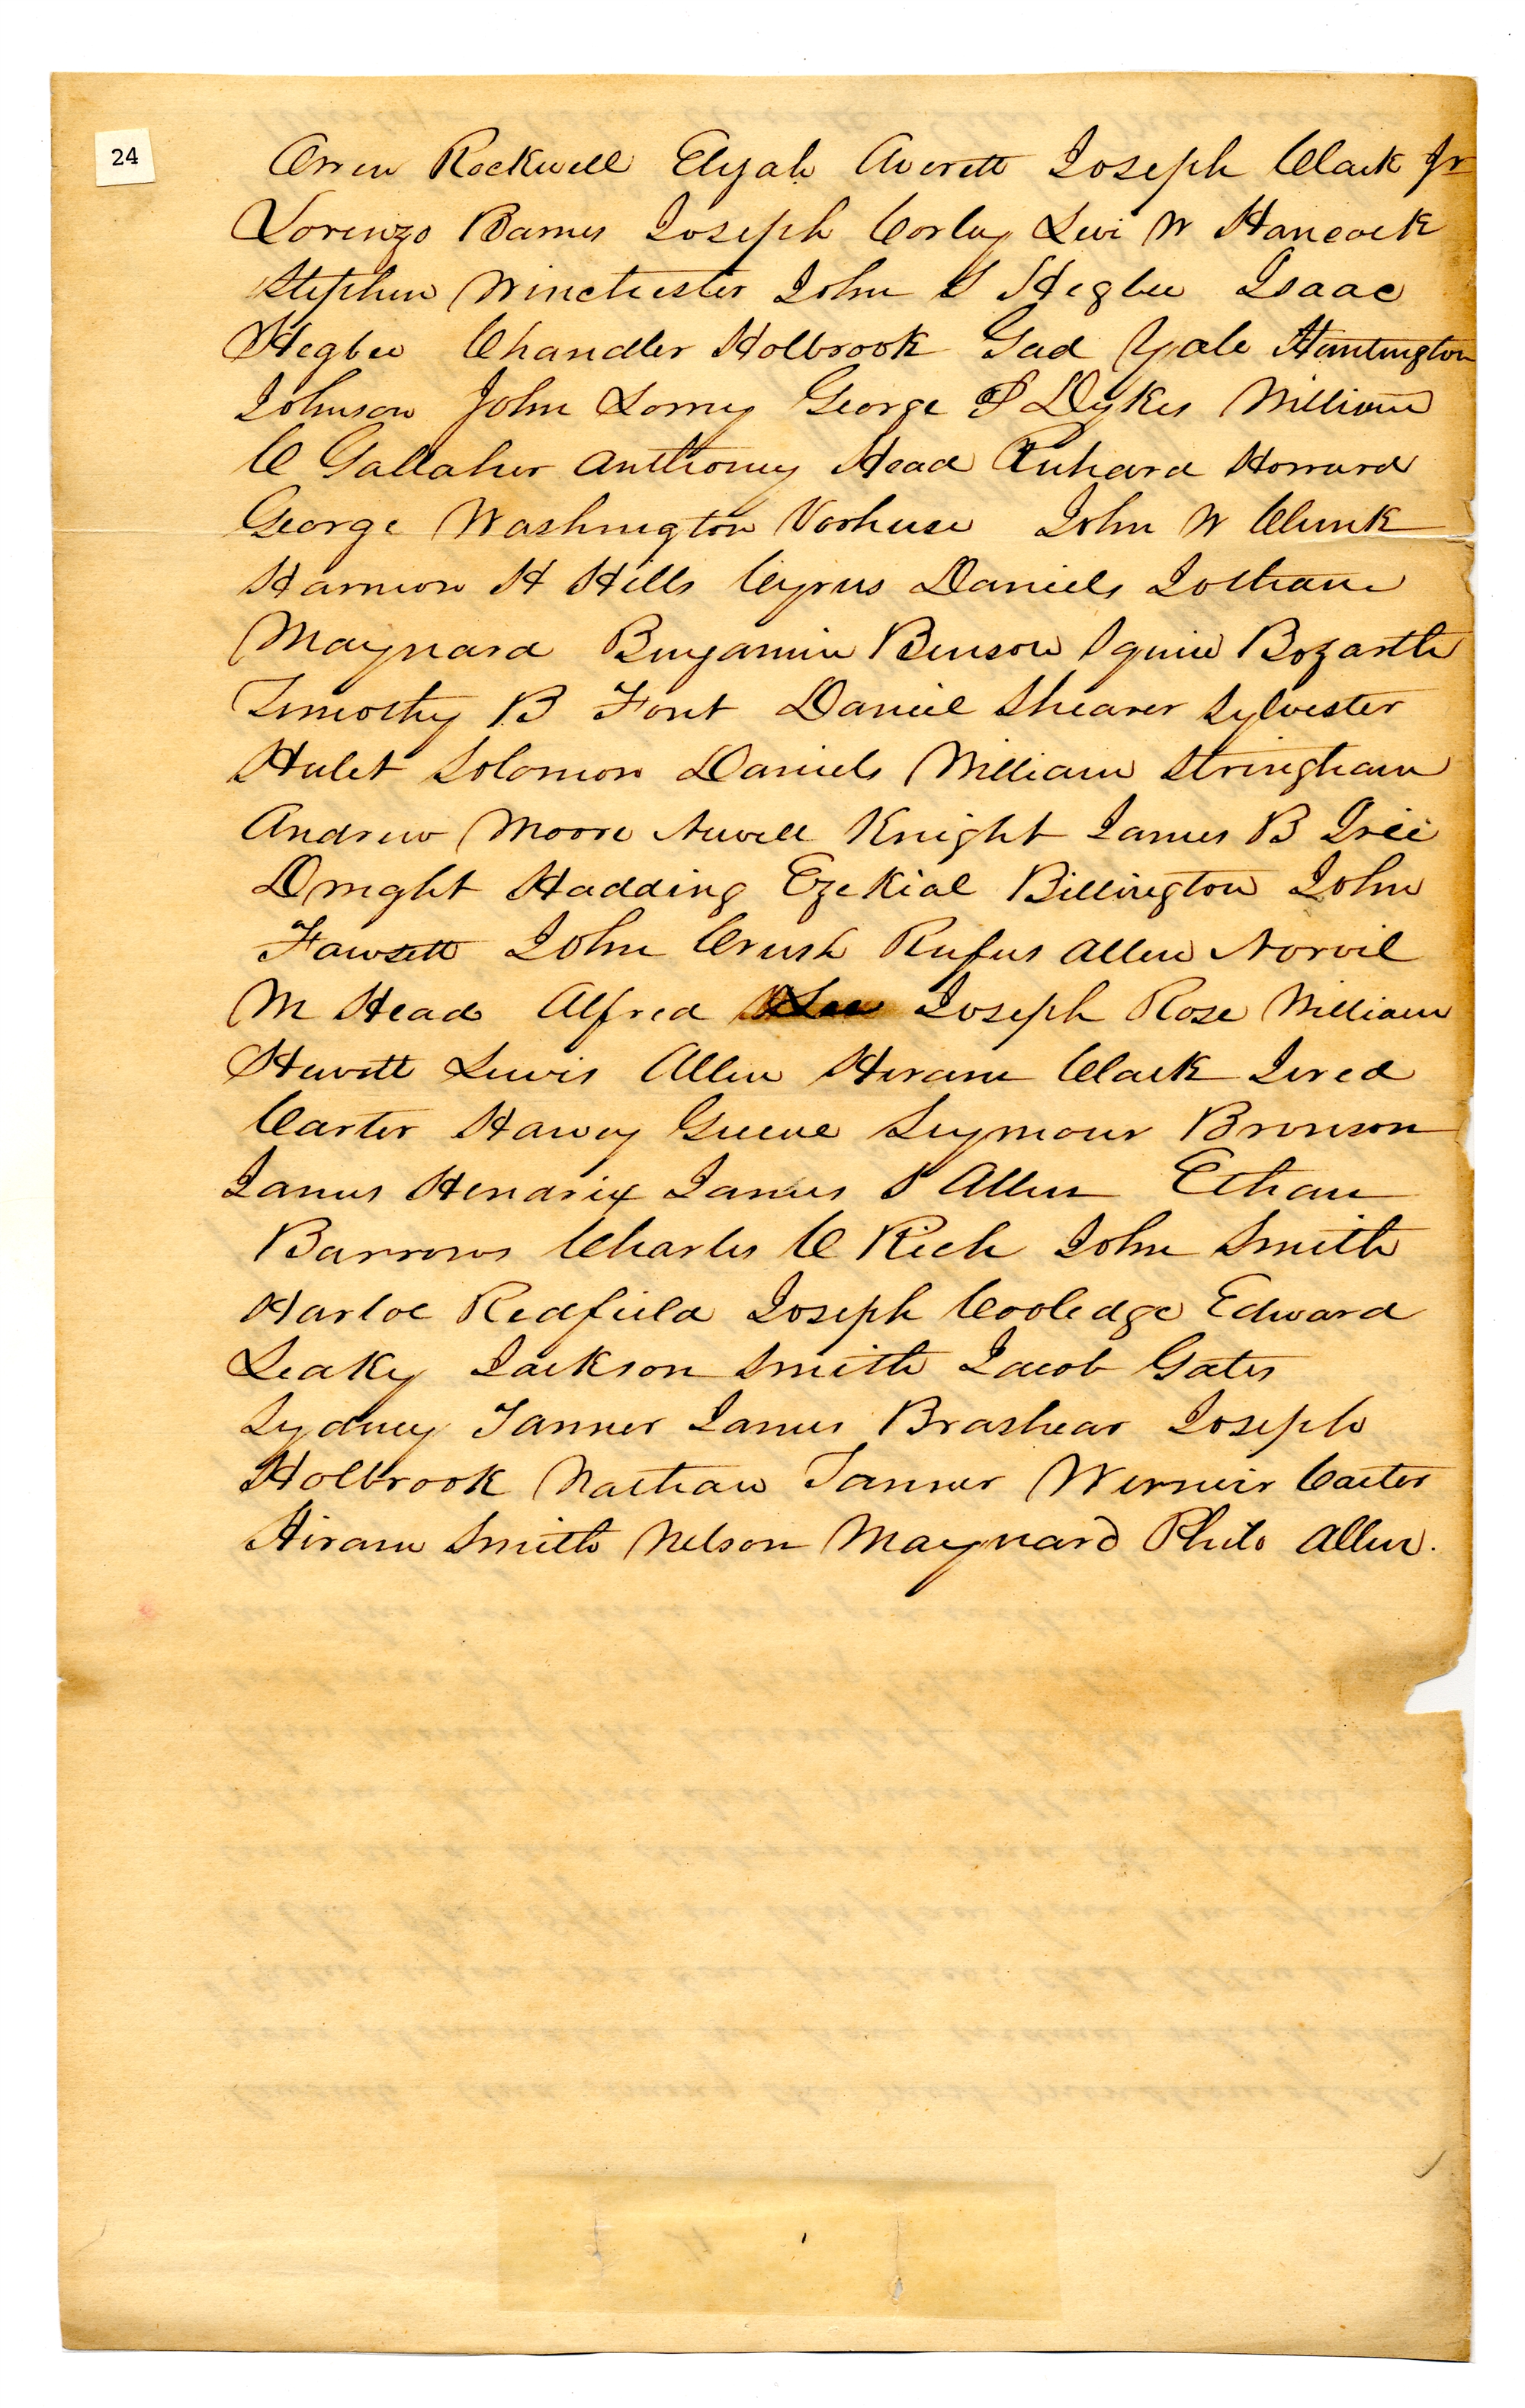 24
Orren Rockwell Elijah Averett Joseph Clark Jr
Lorenzo Barnes Joseph Corley Levi W Hancock
Stephen Winchester John S Hegbee Isaac
Hegbee Chandler Holbrook Gad Yale Huntington
Johnson John Lorry George P Dykes William
C Gallaher Anthony Head Richard Howard
George Washington Vorhese John W Clunk
Harmon H Hills Cyrus Daniels Jotham
Maynard Benjamin Benson Squire Bozarth
Timothy B Foot Daniel Shearer Sylvester
Hulet Solomon Daniels William Stringham
Andrew Moore Newell Knight James B
Dwight Hadding Ezekial Billington John
Fawsett John Crush Rufus Allen Norvil
M Head Alfred Lee Joseph Rose William
Hewett Lewis Allen Hiram Clark Jered
Carter Harvey Greene Seymour Bronson
James Hendrix James S Allen Ethan
Barrows Charles C Rich John Smith
Harloe Redfield Joseph Cooledge Edward
Leaky Jackson Smith Jacob Gates
Sydney Tanner James Brashear Joseph
Holbrook Nathan Tanner Carter
Hiram Smith Nelson Maynard Philo Allen.